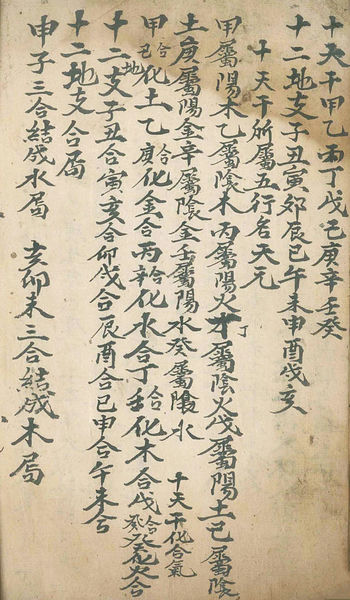 十天干甲乙丙丁戊己庚辛壬癸
十二地支子丑寅卯辰巳午未申酉戌亥
十天干所屬五行名天元
甲屬陽木乙屬陰木丙屬陽火丁屬陰火戊屬陽土己屬陰
土庚屬陽金辛屬陰金壬屬陽水癸屬陰水
十天干化合氣
甲己合化土乙庚合化金合丙辛合化水合丁壬合化木合戊癸合化火合
十二地支子丑合寅亥合卯戌合辰酉合巳申合午未合
十二地支合局
申子三合結成水局 亥卯未三合結成木局